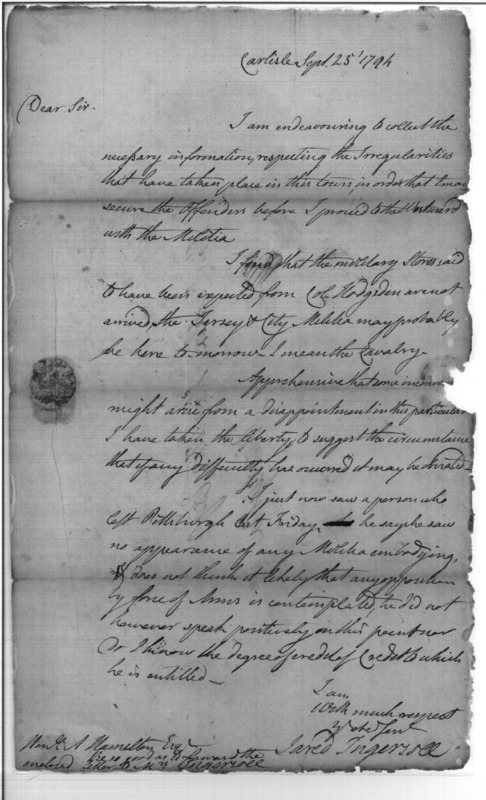 Carlisle Sept. 25' 1794
Dear Sir.
I am endeavouring to collect the
necessary information, respecting the Irregularities
that have taken place in this town in order that I may
secure the Offenders before I proceed to the Westward
with the Militia
I find that the military Stores said
to have been expected from Col. Hodgsden are not
arrived, the Jersey & City Militia may probably
be here to-morrow - I mean the Cavalry.
Apprehensive that some
might arise from a disappointment in this particular
I have taken the liberty to suggest the circumstance
that if any difficulty has occurred it may be obviated -
I just now saw a person who
left Pittsburgh last Friday, he says he saw
no appearance of any Militia embodying,
does not think it likely that any opposition
by force of Arms is contemplated, he did not
however speak positively on this point nor
do I know the degree of Credit to which
he is entitled -
I am
With much respect
Jared Ingersoll
A Hamilton Esqr
be so good as to forward the
enclosed letter to Mrs Ingersoll